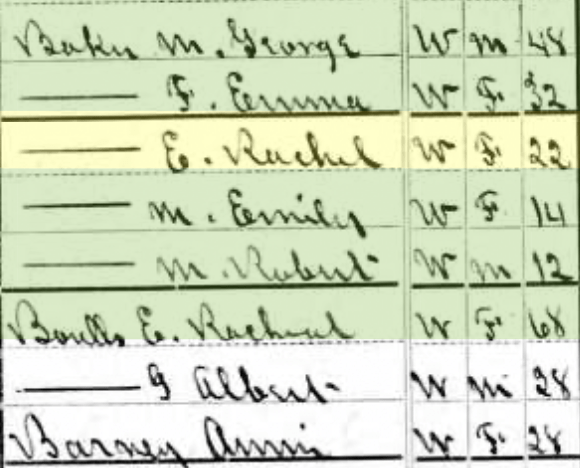 Baker M. George W M 48
—— F. Emma W F. 32
—— E. Rachel W F. 22
—— M. Emily W F. 14
—— M. Robert W M 12
E. Rachael W F. 68
—— G Albert W M 28
Barney Annie W F. 28